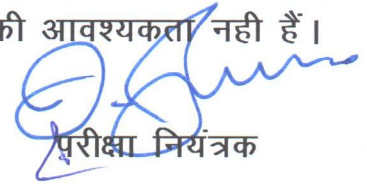 की आवश्यकता नही हैं।
परीक्षा नियंत्रक